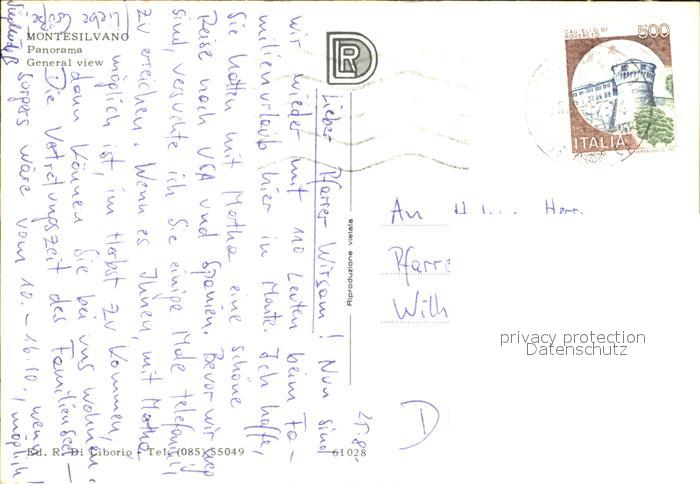 MONTESILVANO
Panorama
General view
DR
CASTELLO DI
ROVERETO
500
ITALIA
Riproduzione vietata
Ed. R. Di Liborio - Tel. (085) 55049
61028
Lieber Pfarrer Wirsam! Nun sind
wir wieder mit 110 Leuten beim Fa-
milienurlaub hier in Monte. Ich hoffe,
Sie hatten mit Martha eine schöne
Reise nach USA und Spanien. Bevor wir weg
sind, versuchte ich Sie einige Male telefonisch
zu erreichen. Wenn es Ihnen, mit Martha
möglich ist, im Herbst zu kommen,
dann können Sie bei uns wohnen.
Die Vertretungszeit des Familienseel-
sorgers wäre vom 10. - 16.10., wenn möglich!
An
Pfarre
Willh
D
privacy protection
Datenschutz